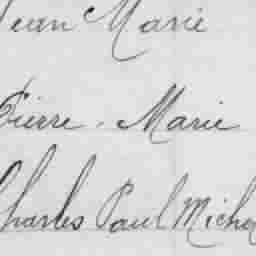 Jean Marie
Pierre - Marie
Charles Paul Micha